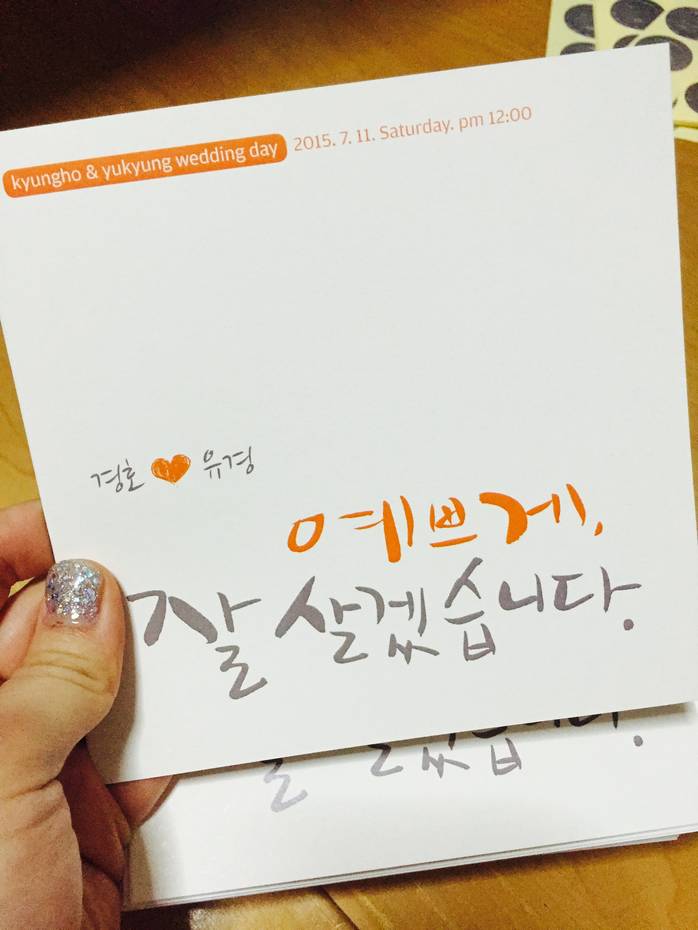 kyungho & yukyung wedding day 2015. 7. 11. Saturday. pm 12:00
경호 유경
예쁘게,
잘 살겠습니다.